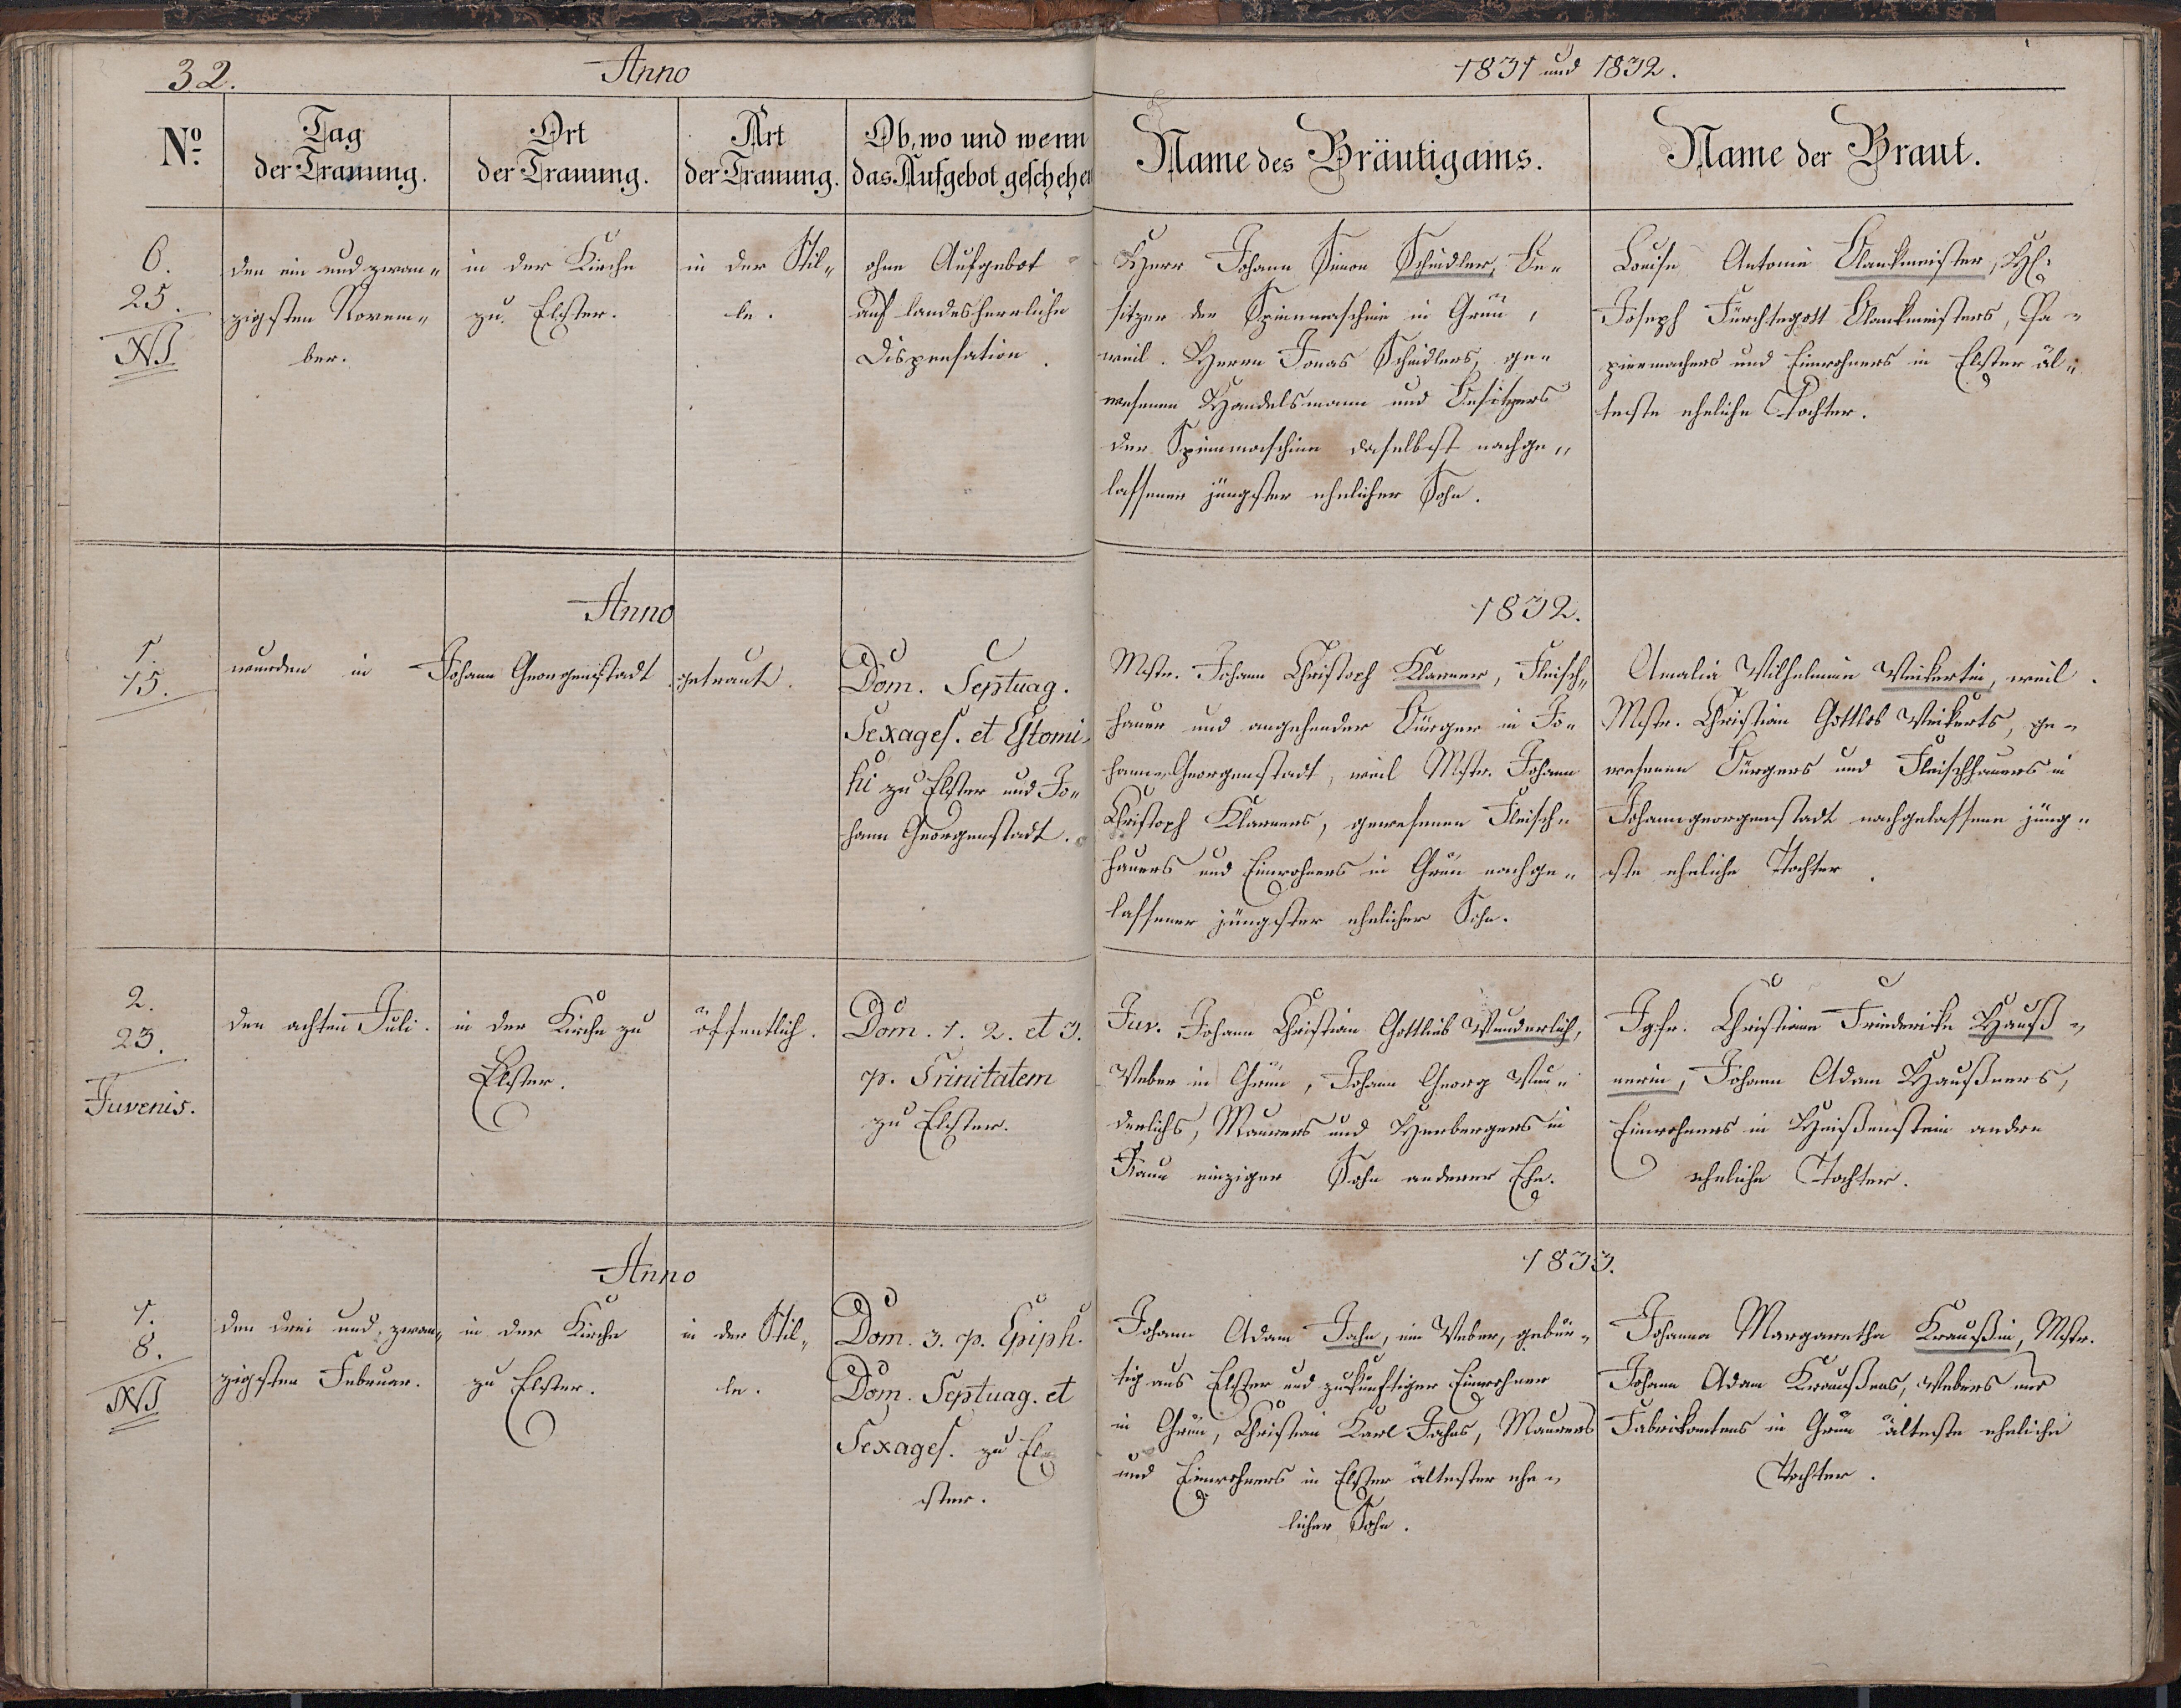 32. Anno 1831 und 1832.
No.
Tag
der Trauung.
Ort
der Trauung.
Art
der Trauung.
Ob, wo und wenn
das Aufgebot geschehen
Name des Bräutigams.
Name der Braut.
6.
25.
NB
den ein und zwan„
zigsten Novem„
ber.
in der Kirche
zu Elster.
in der Stil„
le.
ohne Aufgebot
auf landesherrliche
Dispensation.
Herr Johann Simon Schindler, Be„
sitzer der Spinnmaschine in Grün,
weil. Herrn Jonas Schindlers, ge„
wesenen Handelsmann und Besitzers
der Spinnmaschine daselbst nachge„
lassener jüngster ehelicher Sohn.
Louise Antonie Clankmeister,
Joseph Fürchtegott Clankmeisters, Pa„
piermachers und Einwohners in Elster äl„
teste eheliche Tochter.
Anno 1832.
1.
15.
wurden in Johann Georgenstadt getraut.
Dom. Septuag.
Sexages. et Estomi„
hi zu Elster und Jo„
hann Georgenstadt.
Mstr. Johann Christoph Klarner, Fleisch„
hauer und angehender Bürger in Jo„
hann-Georgenstadt, weil Mstr. Johann
Christoph Klarners, gewesenen Fleisch„
hauers und Einwohners in Grün nachge„
lassener jüngster ehelicher Sohn.
Amalia Wilhelmine Weikertin, weil.
Mstr. Christian Gottlob Weikerts, ge„
wesenen Bürgers und Fleischhauers in
Johanngeorgenstadt nachgelassene jüng„
ste eheliche Tochter.
2.
23.
Juvenis.
den achten Juli.
in der Kirche zu
Elster.
öffentlich.
Dom. 1. 2. et 3.
p. Trinitatem
zu Elster.
Juv. Johann Christian Gottlieb Wunderlich,
Weber in Grün, Johann Georg Wun„
derlichs, Maurers und Herbergers in
einziger Sohn anderer Ehe.
Jgfr. Christiane Friederike Hauß„
nerin, Johann Adam Haußners,
Einwohners in Heißenstein andre
eheliche Tochter.
Anno 1833.
1.
8.
NB
den drei und zwan„
zigsten Februar.
in der Kirche
zu Elster.
in der Stil„
le.
Dom. 3. p. Epiph.
Dom. Septuag. et
Sexages. zu El„
ster.
Johann Adam Jahn, ein Weber, gebür„
tig aus Elster und zukünftiger Einwohner
in Grün, Christian Karl Jahns, Maurers
und Einwohners in Elster ältester ehe„
licher Sohn.
Johanna Margaretha Kraußin, Mstr.
Johann Adam Kraußens, Webers und
Fabrikantens in Grün älteste eheliche
Tochter.